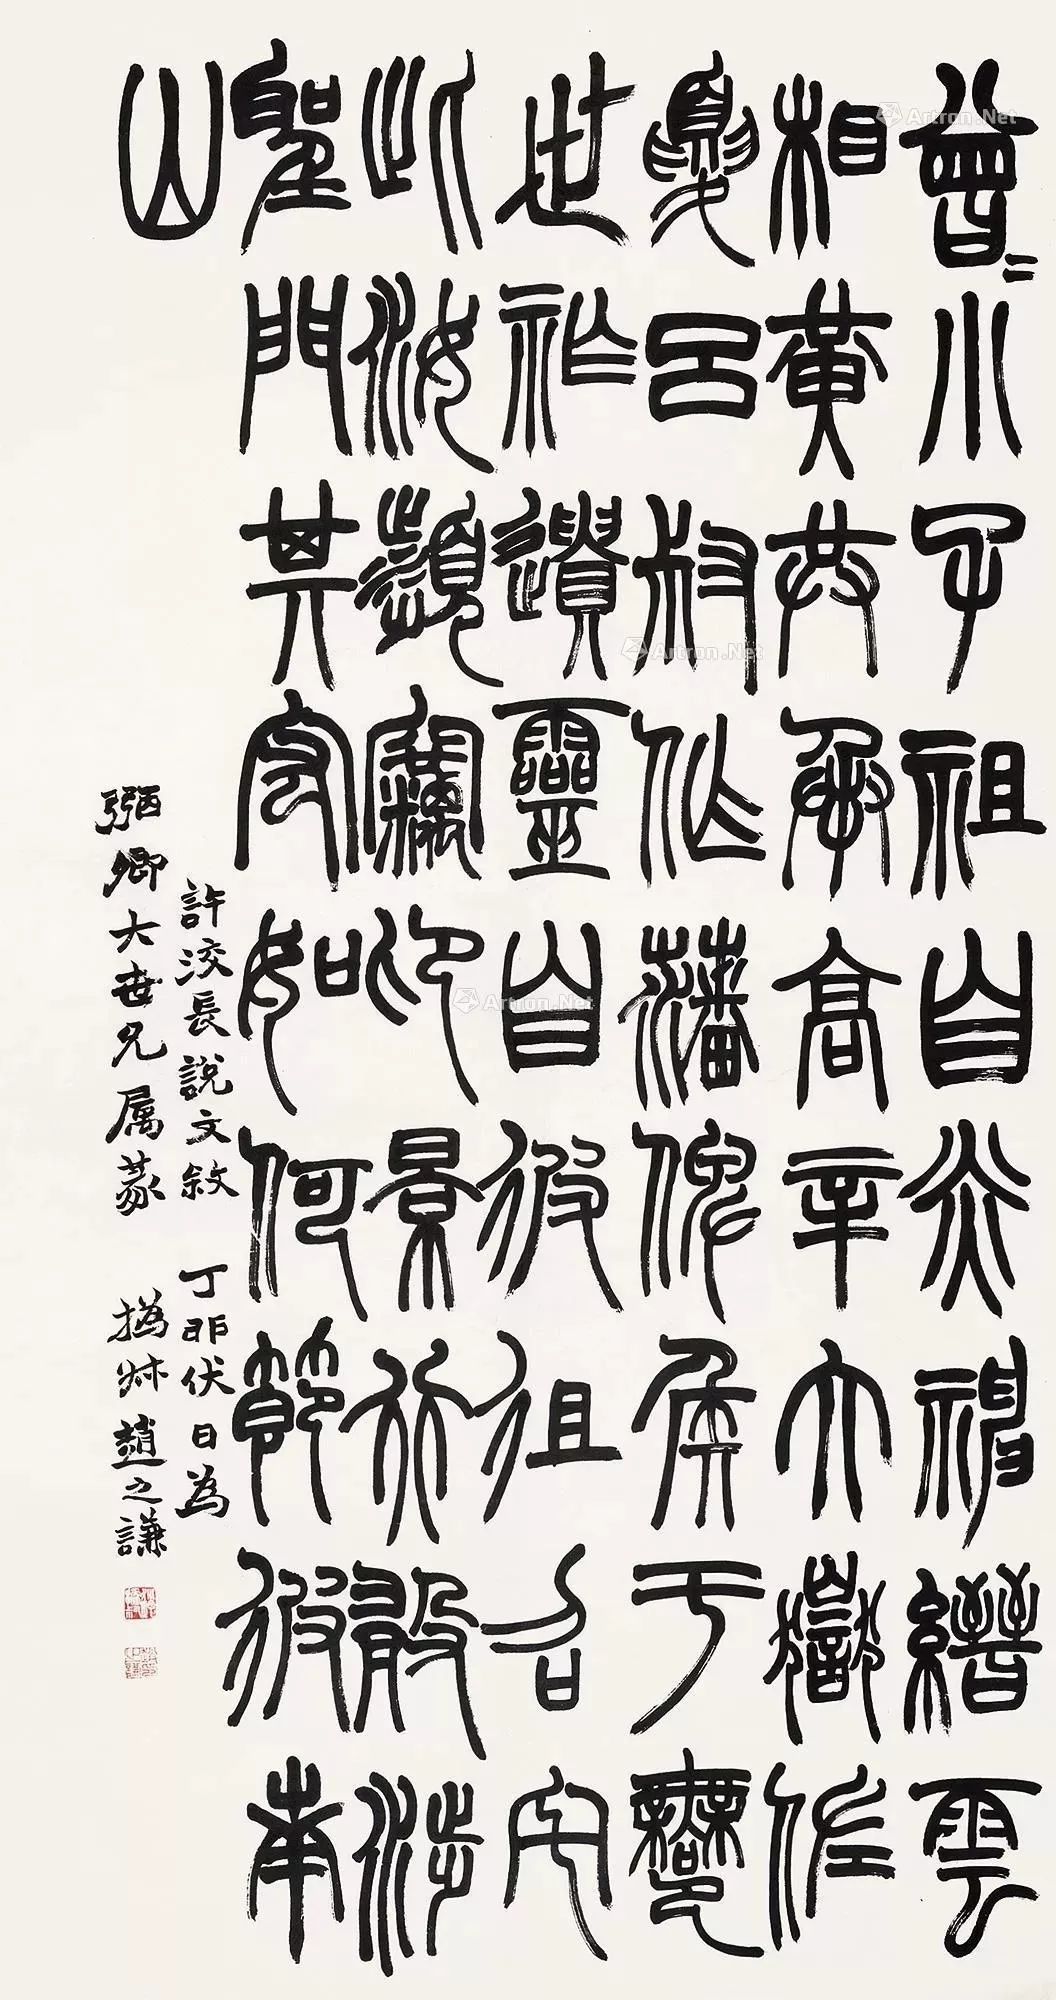 曾〻小子祖自炎神縉雲
相黃共承高辛大嶽佐
夏呂叔作藩俾侯于鄦
世祚遺靈自彼徂召宅
此汝瀕竊卬景行敢涉
聖門其宏如何節彼南
山
許洨長說文敘 丁卯伏日為
弼卿大世兄属篆 撝叔趙之謙
Artron.Net
Artron.Net
Artron.Net